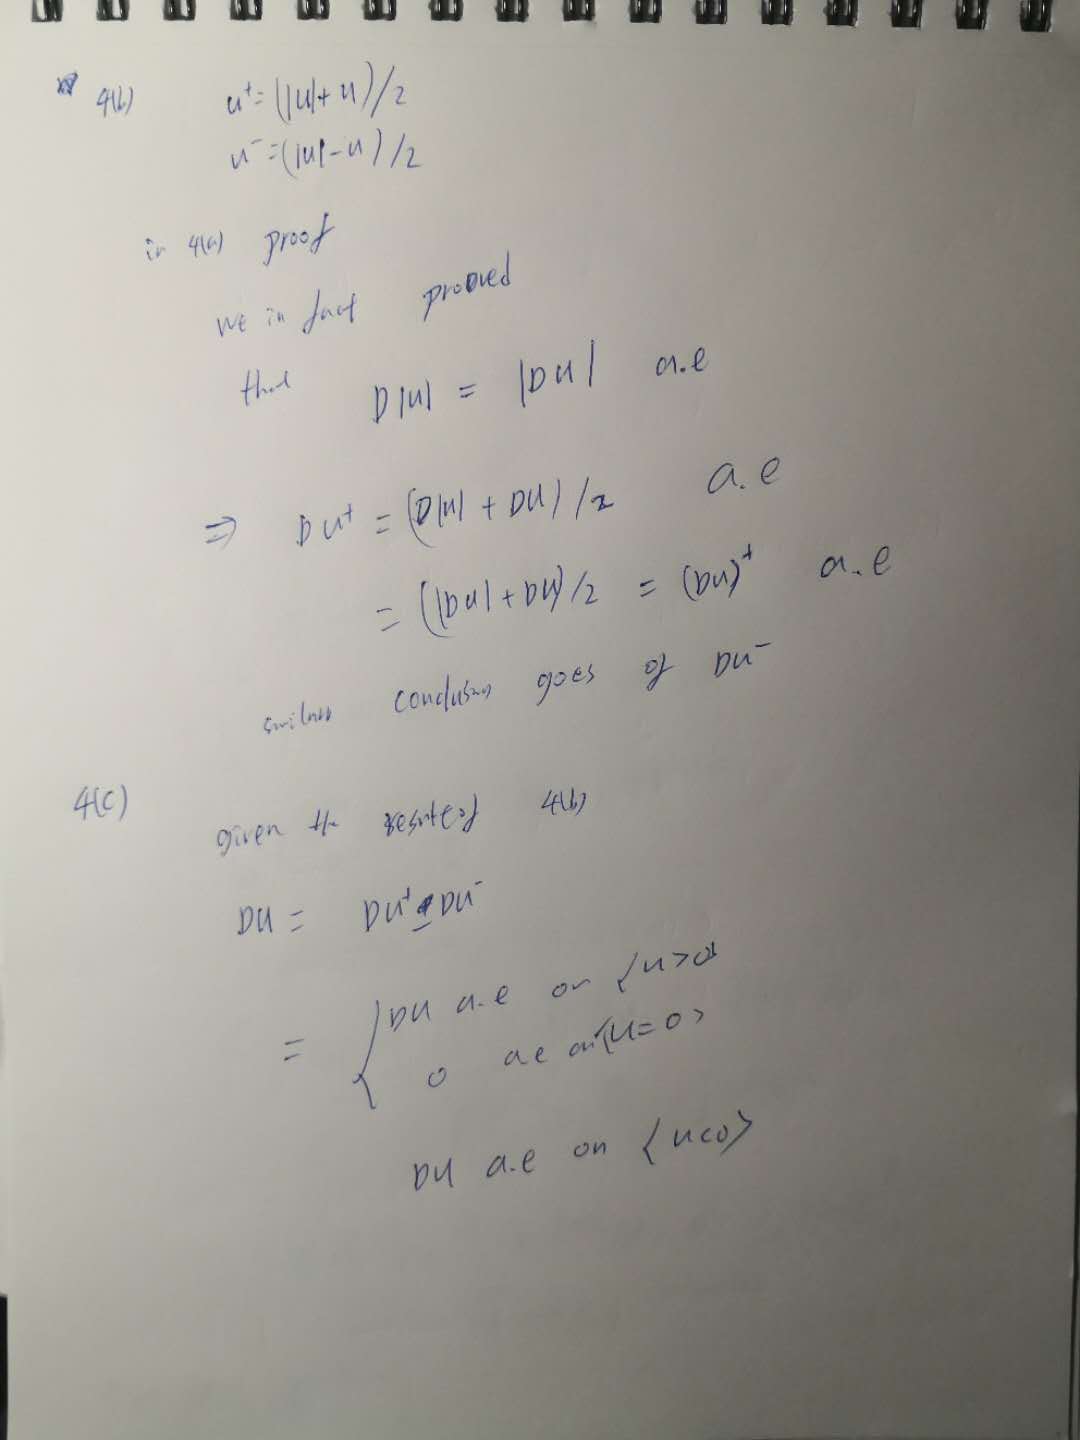 4(b) u⁺=(|u|+u)/2
u⁻=(|u|-u)/2
in 4(a) proof
we in fact prooved
that D|u| = |Du| a.e
⇒ Du⁺ = (D|u| + Du)/2 a.e
= (|Du| + Du)/2 = (Du)⁺ a.e
conclusion goes of Du⁻
4(c)
given the of 4(b)
Du = Du⁺ - Du⁻
= { Du a.e on {u>0}
0 a.e on {u=0}
Du a.e on {u<0}